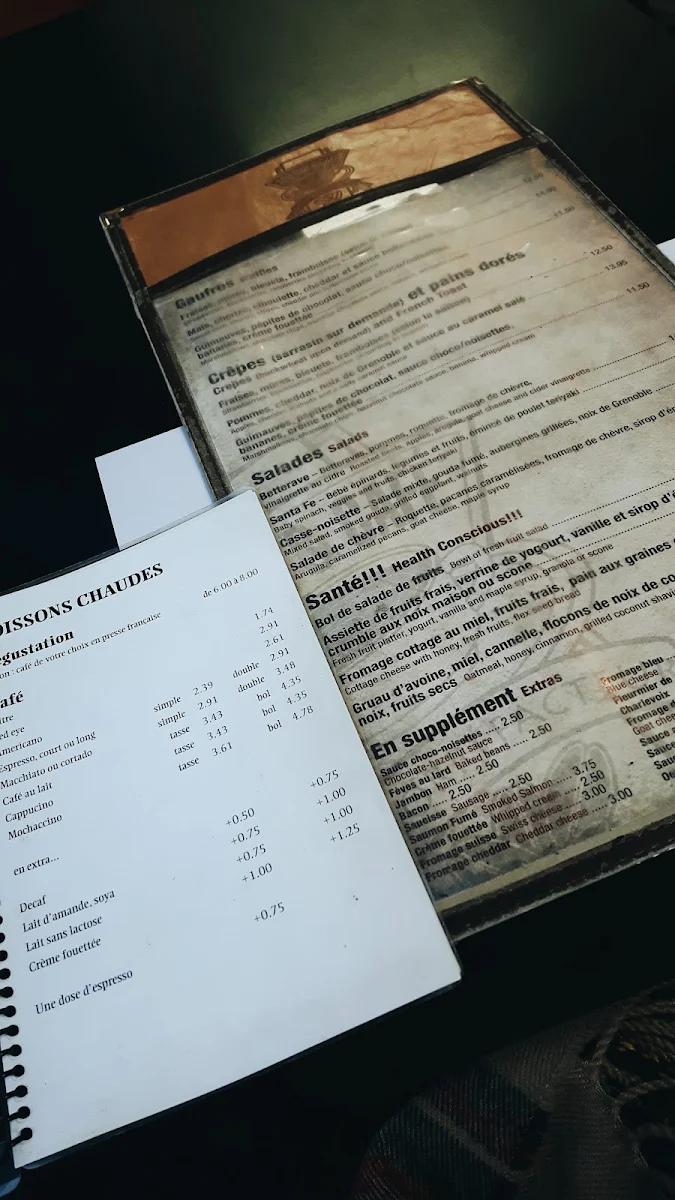 Gaufres
12.50
11.50
Crêpes (sarrasin sur demande) et pains dorés
Crepes (buckwheat upon demand) and French Toast
12.50
Fraises, mûres, bleuets, framboises (selon la saison)
13.95
Pommes, cheddar, noix de Grenoble et sauce au caramel salé
11.50
Guimauves, pépites de chocolat, sauce choco/noisettes,
bananes, crème fouettée
Salades Salads
Betterave – Betteraves, pommes, roquette, fromage de chèvre,
vinaigrette au cidre Roasted beets, apples, arugula, goat cheese and cider vinaigrette
Santa Fe – Bébé épinards, légumes et fruits, émincé de poulet teriyaki
Baby spinach, veggies and fruits, chicken teriyaki
Casse-noisette – Salade mixte, gouda fumé, aubergines grillées, noix de Grenoble
Mixed salad, smoked gouda, grilled eggplant, walnuts
Salade de chèvre – Roquette, pacanes caramélisées, fromage de chèvre, sirop d'é
Arugula, caramelized pecans, goat cheese, maple syrup
Santé!!! Health Conscious!!!
Bol de salade de fruits Bowl of fresh fruit salad
Assiette de fruits frais, verrine de yogourt, vanille et sirop d'é
crumble aux noix maison ou scone
Fresh fruit platter, yogurt, vanilla and maple syrup, granola or scone
Fromage cottage au miel, fruits frais, pain aux graines
Cottage cheese with honey, fresh fruits, flex seed bread
Gruau d'avoine, miel, cannelle, flocons de noix de co
noix, fruits secs Oatmeal, honey, cinnamon, grilled coconut shavi
En supplément Extras
Sauce choco-noisettes ..... 2.50
Chocolate-hazelnut sauce
Fèves au lard Baked beans ..... 2.50
Jambon Ham ..... 2.50
Bacon ..... 2.50
Saucisse Sausage ..... 2.50
Saumon Fumé Smoked Salmon ..... 3.75
Crème fouettée Whipped cream ..... 2.50
Fromage suisse Swiss cheese ..... 3.00
Fromage cheddar Cheddar cheese ..... 3.00
Fromage bleu
Blue cheese
Fleurmier de
Charlevoix
Fromage d
Goat chee
Sauce
Sauce
Sauc
OISSONS CHAUDES
égustation de 6.00 à 8.00
on : café de votre choix en presse française
afé
ltre 1.74
ed eye 2.91
Americano 2.61
Espresso, court ou long simple 2.39 double 2.91
Macchiato ou cortado simple 2.91 double 3.48
Café au lait tasse 3.43 bol 4.35
Cappucino tasse 3.43 bol 4.35
Mochaccino tasse 3.61 bol 4.78
en extra...
Decaf +0.50 +0.75
Lait d'amande, soya +0.75 +1.00
Lait sans lactose +0.75 +1.00
Crème fouettée +1.00 +1.25
Une dose d'espresso +0.75